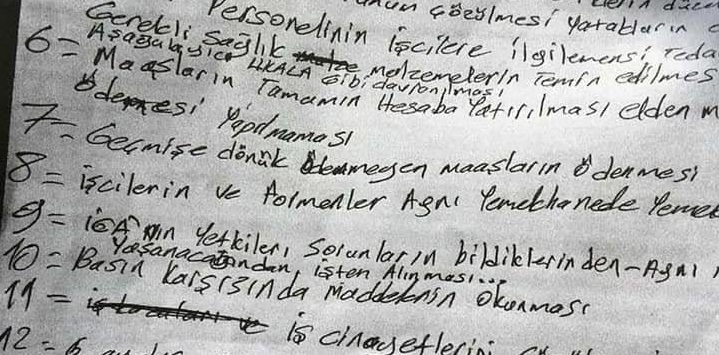 çözülmesi yatakların
Personelinin işcilere ilgilenmesi, Teda
Gerekli sağlık malzemelerin Temin edilmes
Aşağalayıcı davranılması
6 = Maaşların Tamamın Hesaba Yatırılması elden m
ödemesi Yapılmaması
7 = Geçmişe dönük ödenmeyen maaşların ödenmesi
8 = işcilerin ve formenler Aynı Yemekhanede Yemek
9 = iGA'nın Yetkileri, Sorunların bildiklerinden - Aynı
Yaşanacağından, işten Alınması...
10 = Basın karşısında maddelerin Okunması
11 = iş cinayetlerini
12 = 6